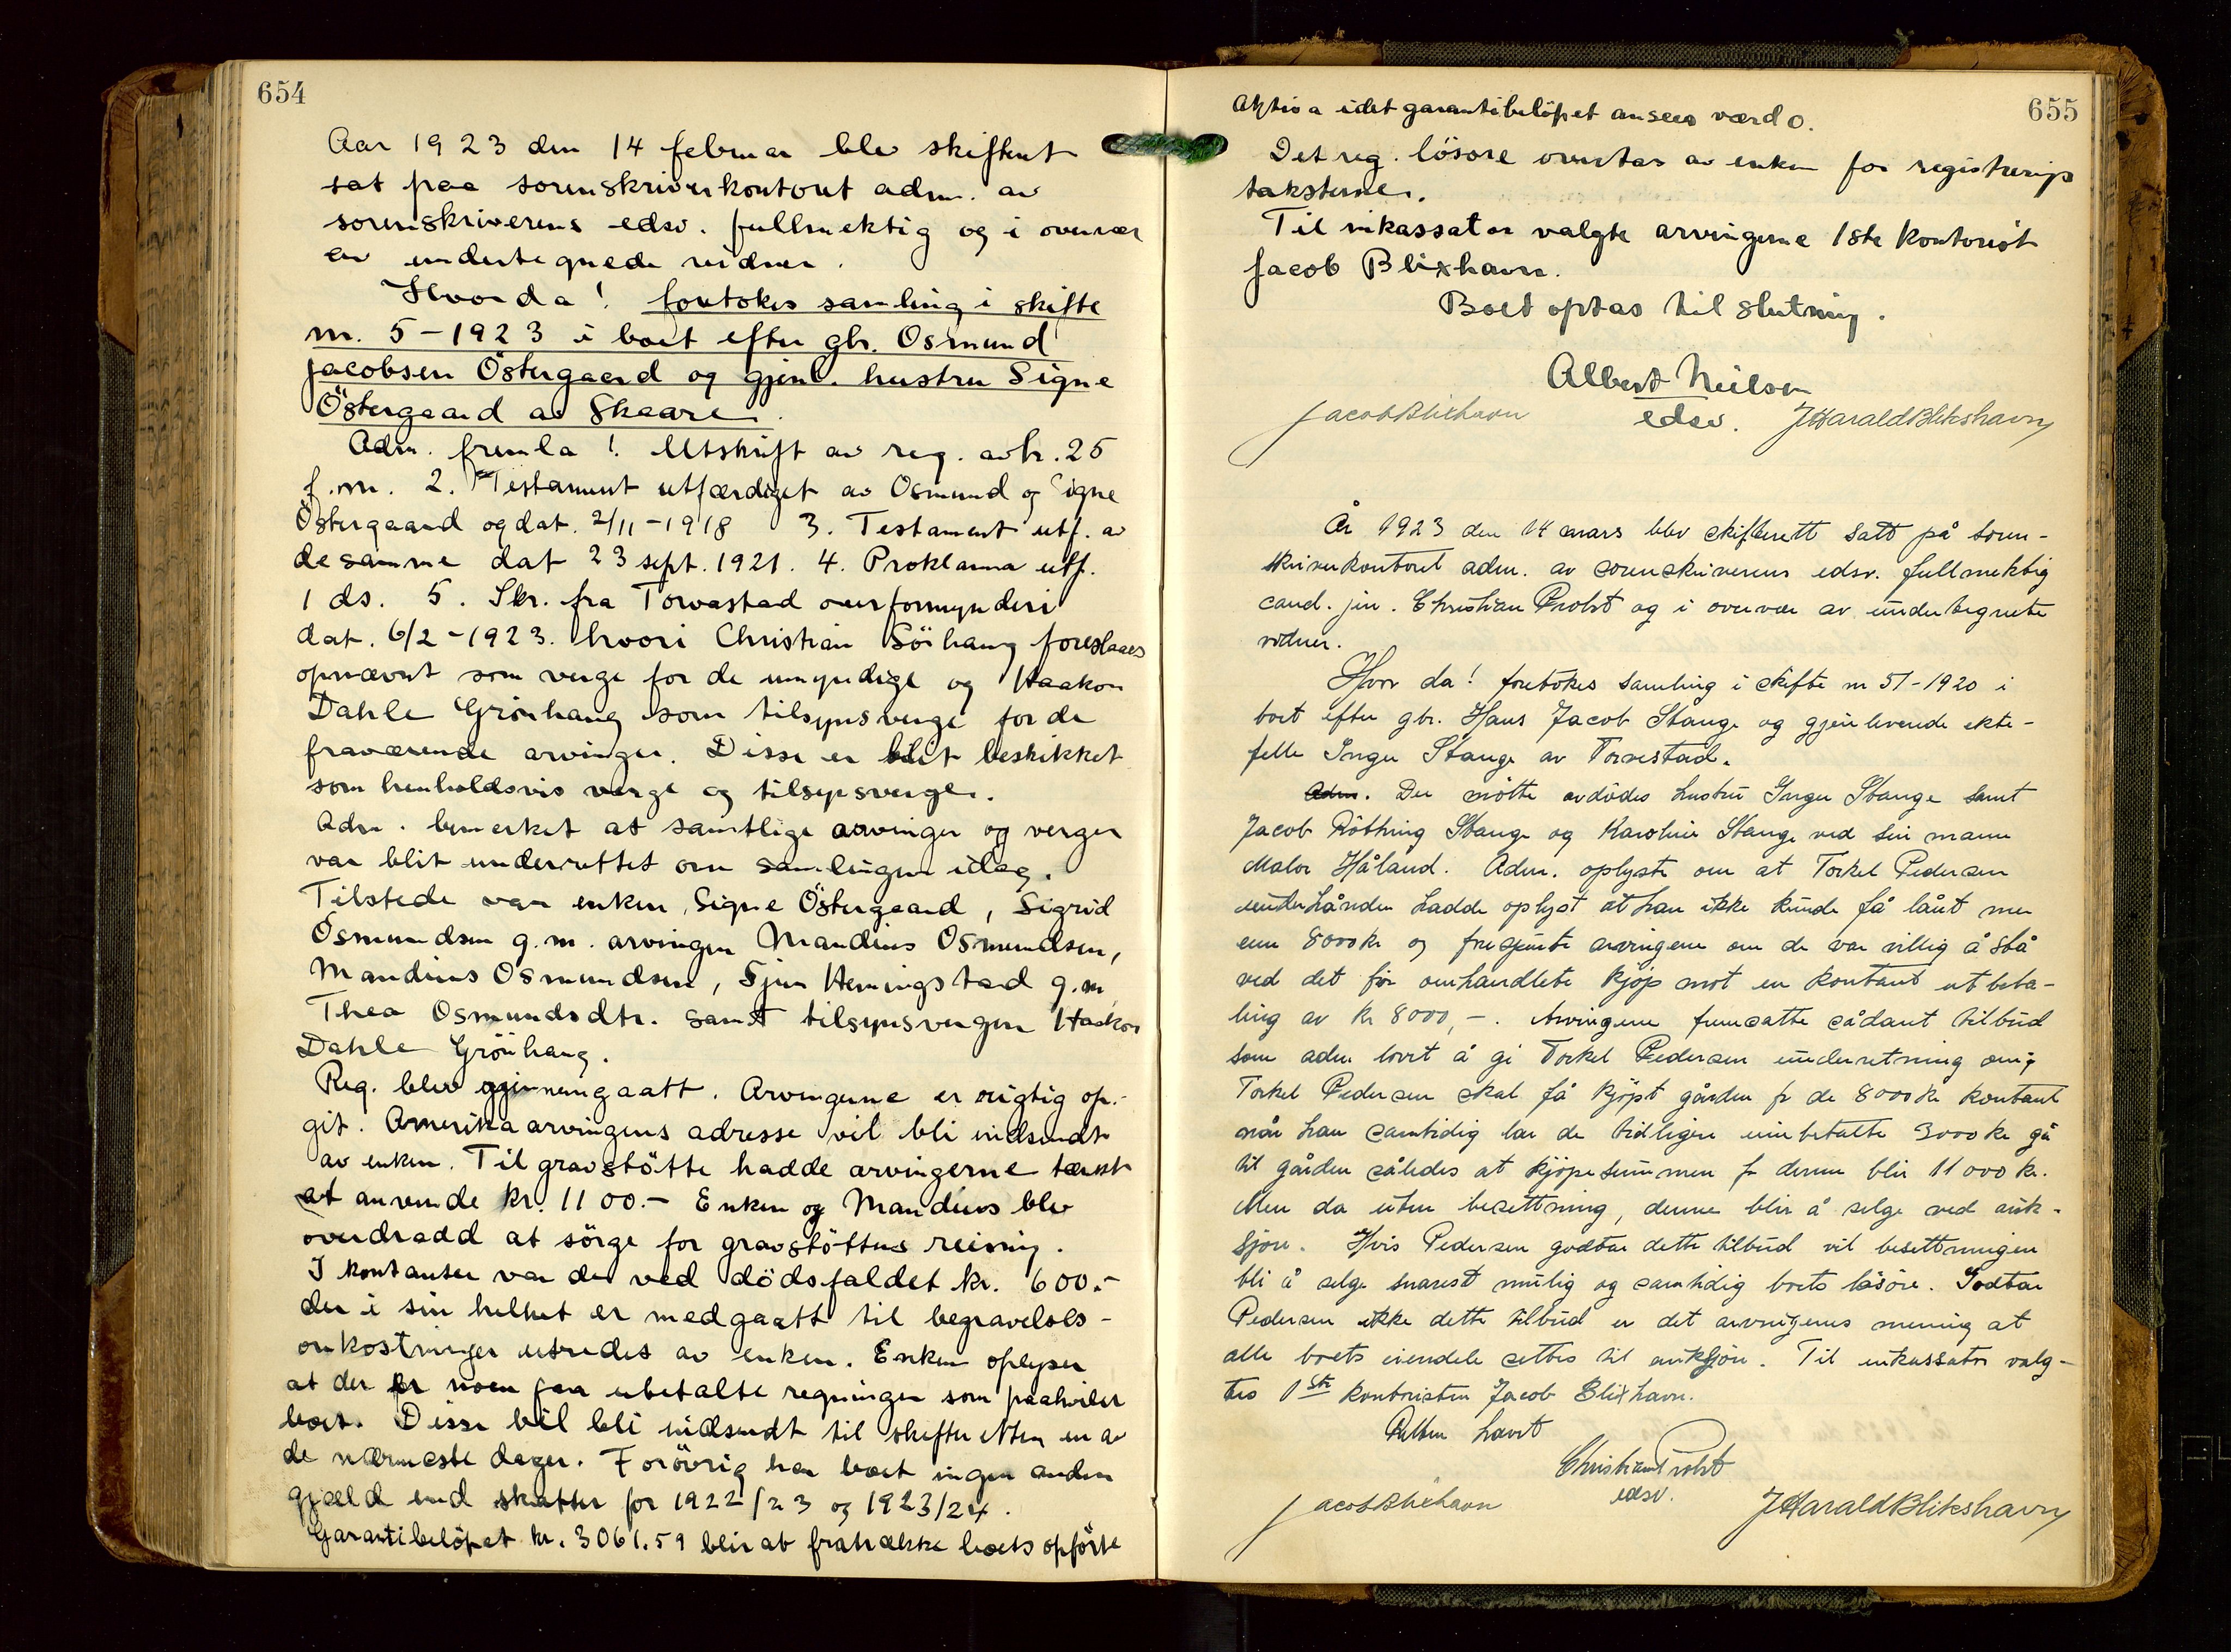 654
Aar 1923 den 14 februar blev skifteret
sat paa sorenskriverkontoret adm. av
sorenskriverens edsv. fullmektig og i overvær
av undertegnede vidner.
Hvorda! foretokes samling i skifte
nr. 5-1923 i boet efter gbr. Osmund
Jacobsen Östergaard og gjenl. hustru Signe
Östergaard av Skaare.
Adm. fremla! Utskrift av reg. avh. 25
f.m. 2. Testament utfærdiget av Osmund og Signe
Östergaard og dat. 2/11-1918 3. Testament utf. av
de samme dat 23 sept. 1921. 4. Proklama utf.
1 ds. 5. Skr. fra Torvastad overformynderi
dat. 6/2-1923. hvori Christian Sörhaug foreslaaes
opnævnt som verge for de umyndige og Haakon
Dahle Grönhaug som tilsynsverge for de
fraværende arvinger. Disse er blit beskikket
som henholdsvis verge og tilsynsverge.
Adm. bemerket at samtlige arvinger og verger
var blit underrettet om samlingen idag.
Tilstede var enken, Signe Östergaard, Sigrid
Osmundsen g.m. arvingen Mandius Osmundsen,
Mandius Osmundsen, Sjur Hemingstad g.m.
Thea Osmundsdtr. samt tilsynsvergen Haakon
Dahle Grönhaug.
Reg. blev gjennemgaatt. Arvingerne er rigtig op-
git. Amerikaarvingens adresse vil bli indsendt
av enken. Til gravstötte hadde arvingerne tænkt
at anvende kr. 1100.- Enken og Mandius blev
overdradd at sörge for gravstöttens reisning.
I kontanter var der ved dödsfaldet kr. 600.-
der i sin helhet er medgaatt til begravelses-
omkostninger utredet av enken. Enken oplyser
at der er noen faa ubetalte regninger som paahviler
boet. Disse vil bli indsendt til skifteretten en av
de nærmeste dager. Forövrig har boet ingen anden
gjæld end skatter for 1922/23 og 1923/24.
Garantibelöpet kr. 3061.59 blir at fratrække boets opförte
655
Aktiva idet garantibelöpet ansees værd 0.
Det reg. lösöre overtas av enken for registrerings
taksterne.
Til inkassator valgte arvingerne 1ste kontorist
Jacob Blixhavn.
Boet optas til slutning.
Albert Nielsen
edsv.
Jacob Blixhavn
J Harald Blikshavn
År 1923 den 14 mars blev skifterett satt på soren-
skriverkontoret adm. av sorenskriverens edsv. fullmektig
cand. jur. Christian Probst og i overvær av undertegnete
vidner.
Hvor da! foretokes samling i skifte nr 51-1920 i
boet efter gbr. Hans Jacob Stange og gjenlevende ekte-
felle Inger Stange av Torvestad.
Adm. Der mötte avdödes hustru Inger Stange samt
Jacob Röthing Stange og Karoline Stange ved sin mann
Malor Håland. Adm. oplyste om at Torkel Pedersen
underhånden hadde oplyst at han ikke kunde få lånt mer
enn 8000 kr og forespurte arvingene om de var villig å stå
ved det för omhandlete kjöp mot en kontant utbeta-
ling av kr 8000,-. Arvingene fremsatte sådant tilbud
som adm lovet å gi Torkel Pedersen underretning om;
Torkel Pedersen skal få kjöpt gården for de 8000 kr kontant
når han samtidig lar de tidligere innbetalte 3000 kr gå
til gården således at kjöpesummen for denne blir 11000 kr.
Men da uten besettning, denne blir å selge ved auk-
sjon. Hvis Pedersen godtar dette tilbud vil besettningen
bli å selge snarest mulig og samtidig boets lösöre. Godtar
Pedersen ikke dette tilbud er det arvingenes mening at
alle boets eiendele settes til auksjon. Til inkassator valg-
tes 1ste kontoristen Jacob Blixhavn.
Retten hævet
Christian Probst
edsv.
Jacob Blixhavn
J Harald Blikshavn